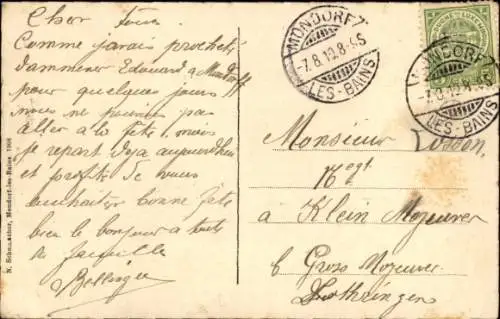 Cher tous
Comme j'avais projeté
d'ammener Edouard a Mondorf
pour quelques jours
nous ne pouvons pas
aller à la fête, mais
je repart deja aujourdhui
et profite de vous
souhaiter bonne fete
bien le bonjour a toute
la famille
Bettinger
N. Schumacher, Mondorf-les-Bains 1908
MONDORF
-7.8.10.8-9S
LES-BAINS
MONDORF
LES-BAINS
Monsieur
Kegt
à Klein Moyeuvre
b Gross Moyeuvre
Lothringen